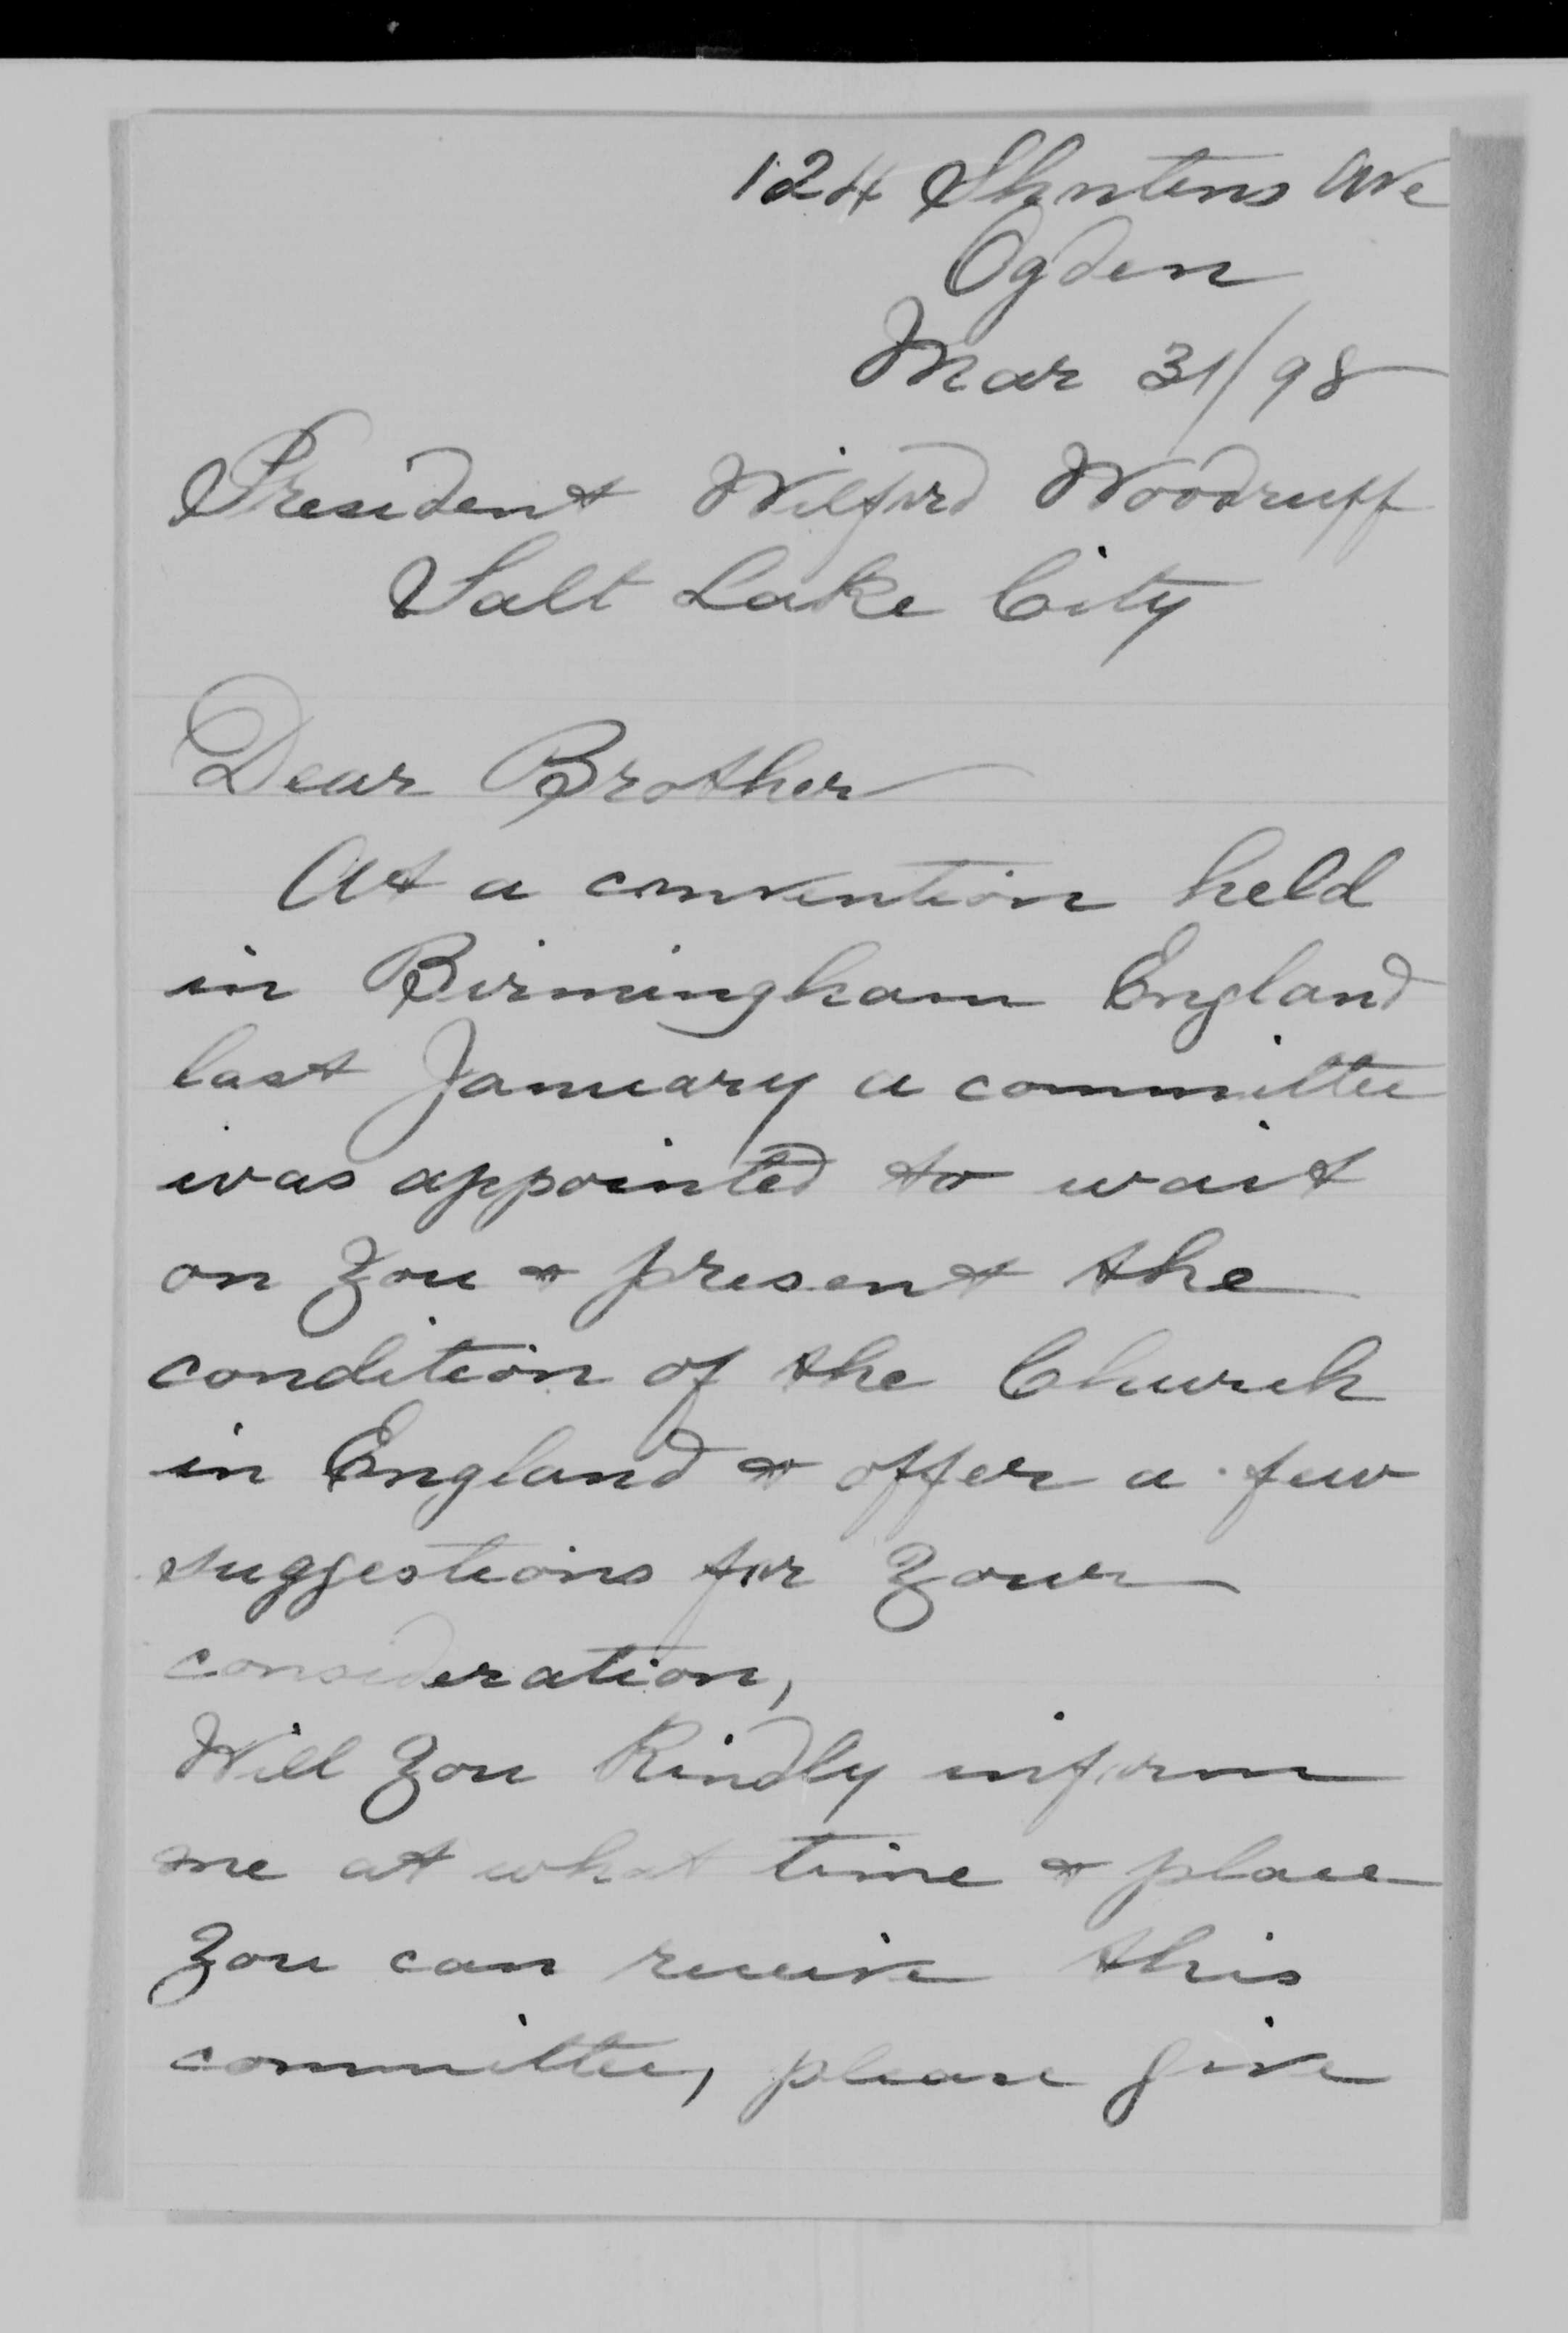 124 Ave
Ogden
Mar 31/98
President Wilford Woodruff
Salt Lake City
Dear Brother
At a convention held
in Birmingham England
last January a committee
was appointed to wait
on you & present the
condition of the Church
in England & offer a few
suggestions for your
consideration,
Will you kindly inform
me at what time & place
you can receive this
committee, please give